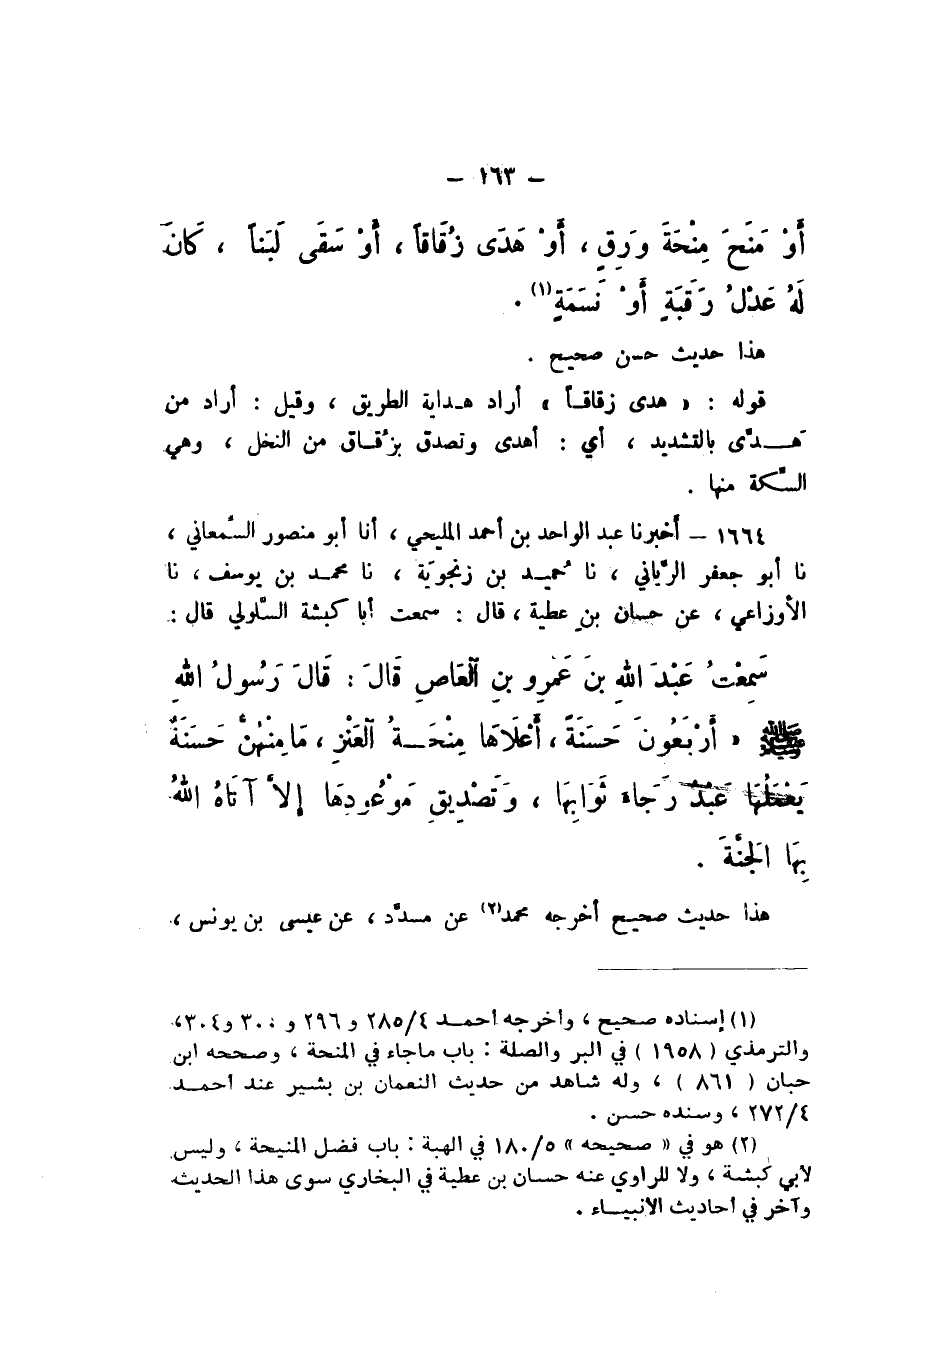 - ١٦٣ -
أَوْ مَنَحَ مِنْحَةَ وَرِقٍ ، أَوْ هَدَى زُقَاقاً ، أَوْ سَقَى لَبَناً ، كَانَ
لَهُ عَدْلُ رَقَبَةٍ أَوْ نَسَمَةٍ(١) .
هذا حديث حسن صحيح .
قوله : « هدى زقاقاً » أراد هداية الطريق ، وقيل : أراد من
هَدَّى بالتشديد ، أي : أهدى وتصدق بزُقاق من النخل ، وهي
السِّكة منها .
١٦٦٤ – أخبرنا عبد الواحد بن أحمد المليحي ، أنا أبو منصور السَّمعاني ،
نا أبو جعفر الرَّياني ، نا حُميد بن زنجويَة ، نا محمد بن يوسف ، نا
الأوزاعي ، عن حسان بن عطية ، قال : سمعت أبا كبشة السَّلولي قال :
سَمِعْتُ عَبْدَ اللهِ بنَ عَمْرِو بنِ الْعَاصِ قَالَ : قَالَ رَسُولُ اللهِ
ﷺ « أَرْبَعُونَ حَسَنَةً ، أَعْلَاهَا مِنْحَةُ الْعَنْزِ ، مَا مِنْهُنَّ حَسَنَةٌ
يَعْمَلُهَا عَبْدٌ رَجَاءَ ثَوَابِهَا ، وَتَصْدِيقِ مَوْعُودِهَا إِلَّا آتَاهُ اللهُ
بِهَا الجَنَّةَ .
هذا حديث صحيح أخرجه محمد(٢) عن مسدَّد ، عن عيسى بن يونس ،
(١) إسناده صحيح ، وأخرجه أحمد ٢٨٥/٤ و ٢٩٦ و ٣٠٠ و ٣٠٤ ،
والترمذي ( ١٩٥٨ ) في البر والصلة : باب ماجاء في المنحة ، وصححه ابن
حبان ( ٨٦١ ) ، وله شاهد من حديث النعمان بن بشير عند أحمد
٢٧٢/٤ ، وسنده حسن .
(٢) هو في « صحيحه » ١٨٠/٥ في الهبة : باب فضل المنيحة ، وليس
لأبي كبشة ، ولا للراوي عنه حسان بن عطية في البخاري سوى هذا الحديث
وآخر في أحاديث الأنبياء .